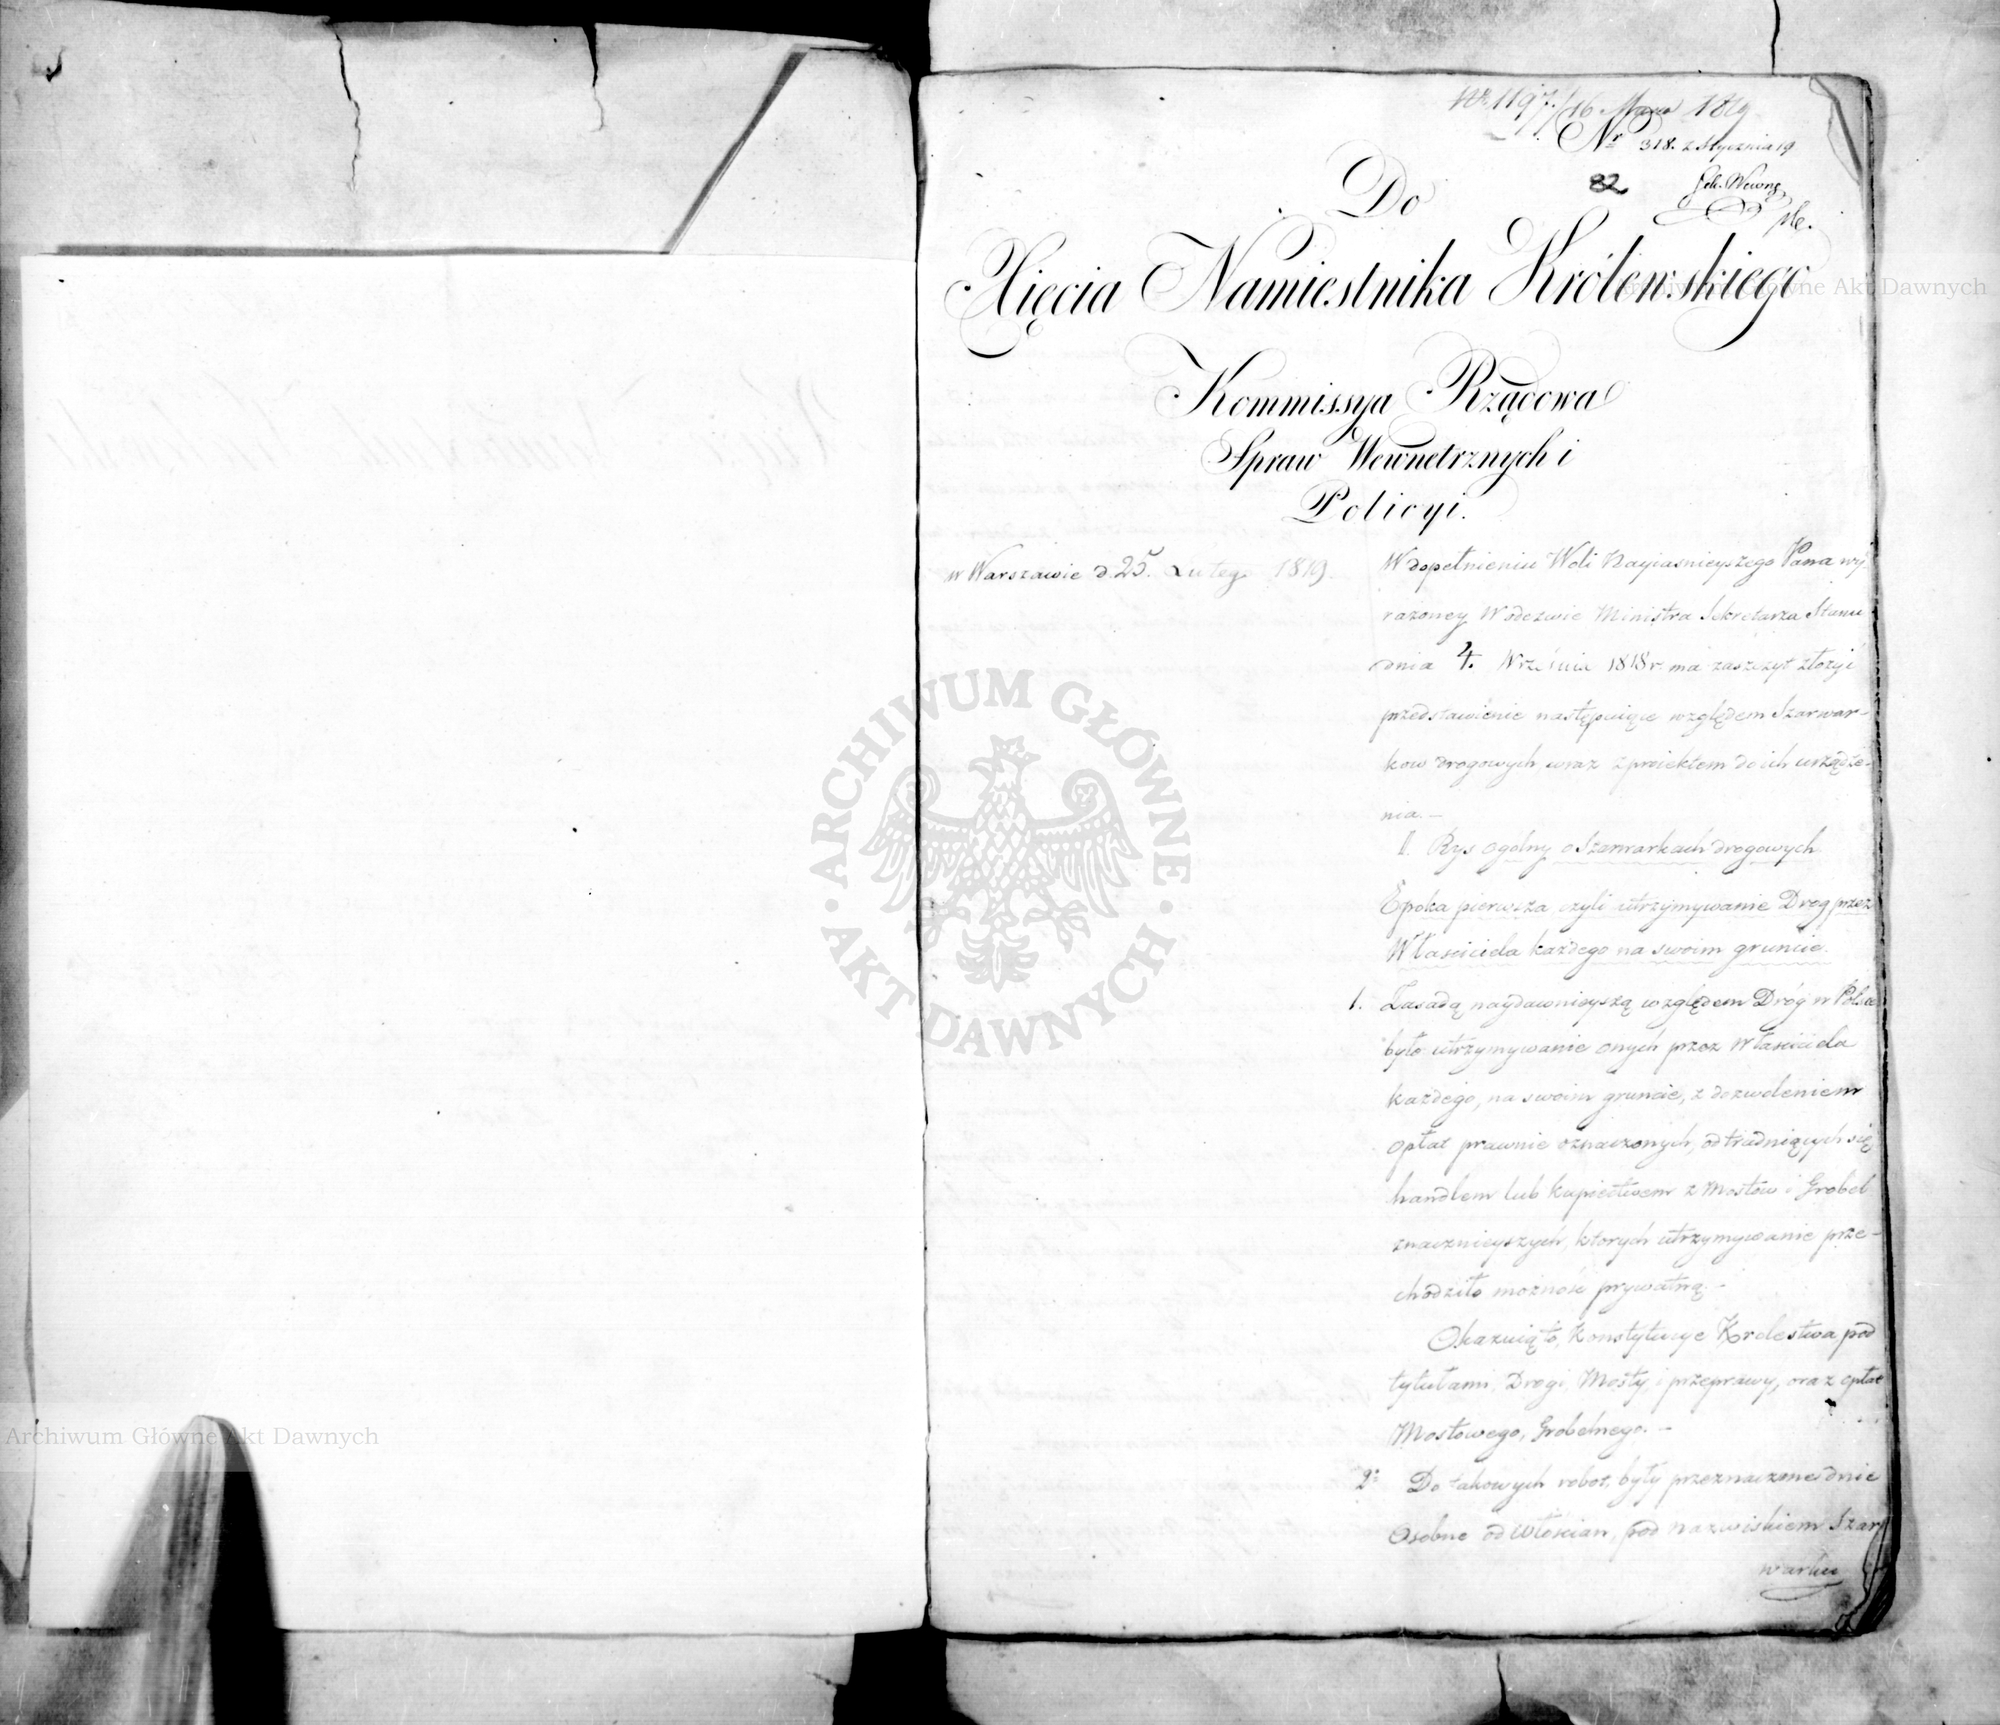 Nr 1197/16 Marca 1819
Nr 318. z Stycznia 19
82
Do
Xięcia Namiestnika Królewskiego
Archiwum Główne Akt Dawnych
Kommissya Rządowa
Spraw Wewnetrznych i
Policyi.
w Warszawie d. 25. Lutego 1819.
W dopełnieniu Woli Nayiasnieyszego Pana wy-
rażoney w odezwie Ministra Sekretarza Stanu
dnia 4. Września 1818 r. ma zaszczyt złożyć
przedstawienie następuiące względem Szarwar-
kow drogowych, wraz z proiektem do ich urządze-
nia.—
I. Rys ogólny o Szarwarkach drogowych
Epoka pierwsza, czyli utrzymywanie Drog przez
Właściciela każdego na swoim gruncie.
1. Zasadą naydawnieyszą względem Dróg w Polsce
było utrzymywanie onych przez Właściciela
każdego, na swoim gruncie, z dozwoleniem
opłat prawnie oznaczonych, od trudniących się
handlem lub kupiectwem z Mostów i Grobel
znacznieyszych, ktorych utrzymywanie prze-
chodziło możność prywatną.—
Okazuią to, konstytucye Krolestwa pod
tytułami, Drogi, Mosty, i przeprawy, oraz opłat
Mostowego, Grobelnego.—
2. Do takowych robot, były przeznaczone dnie
Osobne od Włościan, pod nazwiskiem Szar-
warku
ARCHIWUM GŁÓWNE
AKT DAWNYCH
Archiwum Główne Akt Dawnych